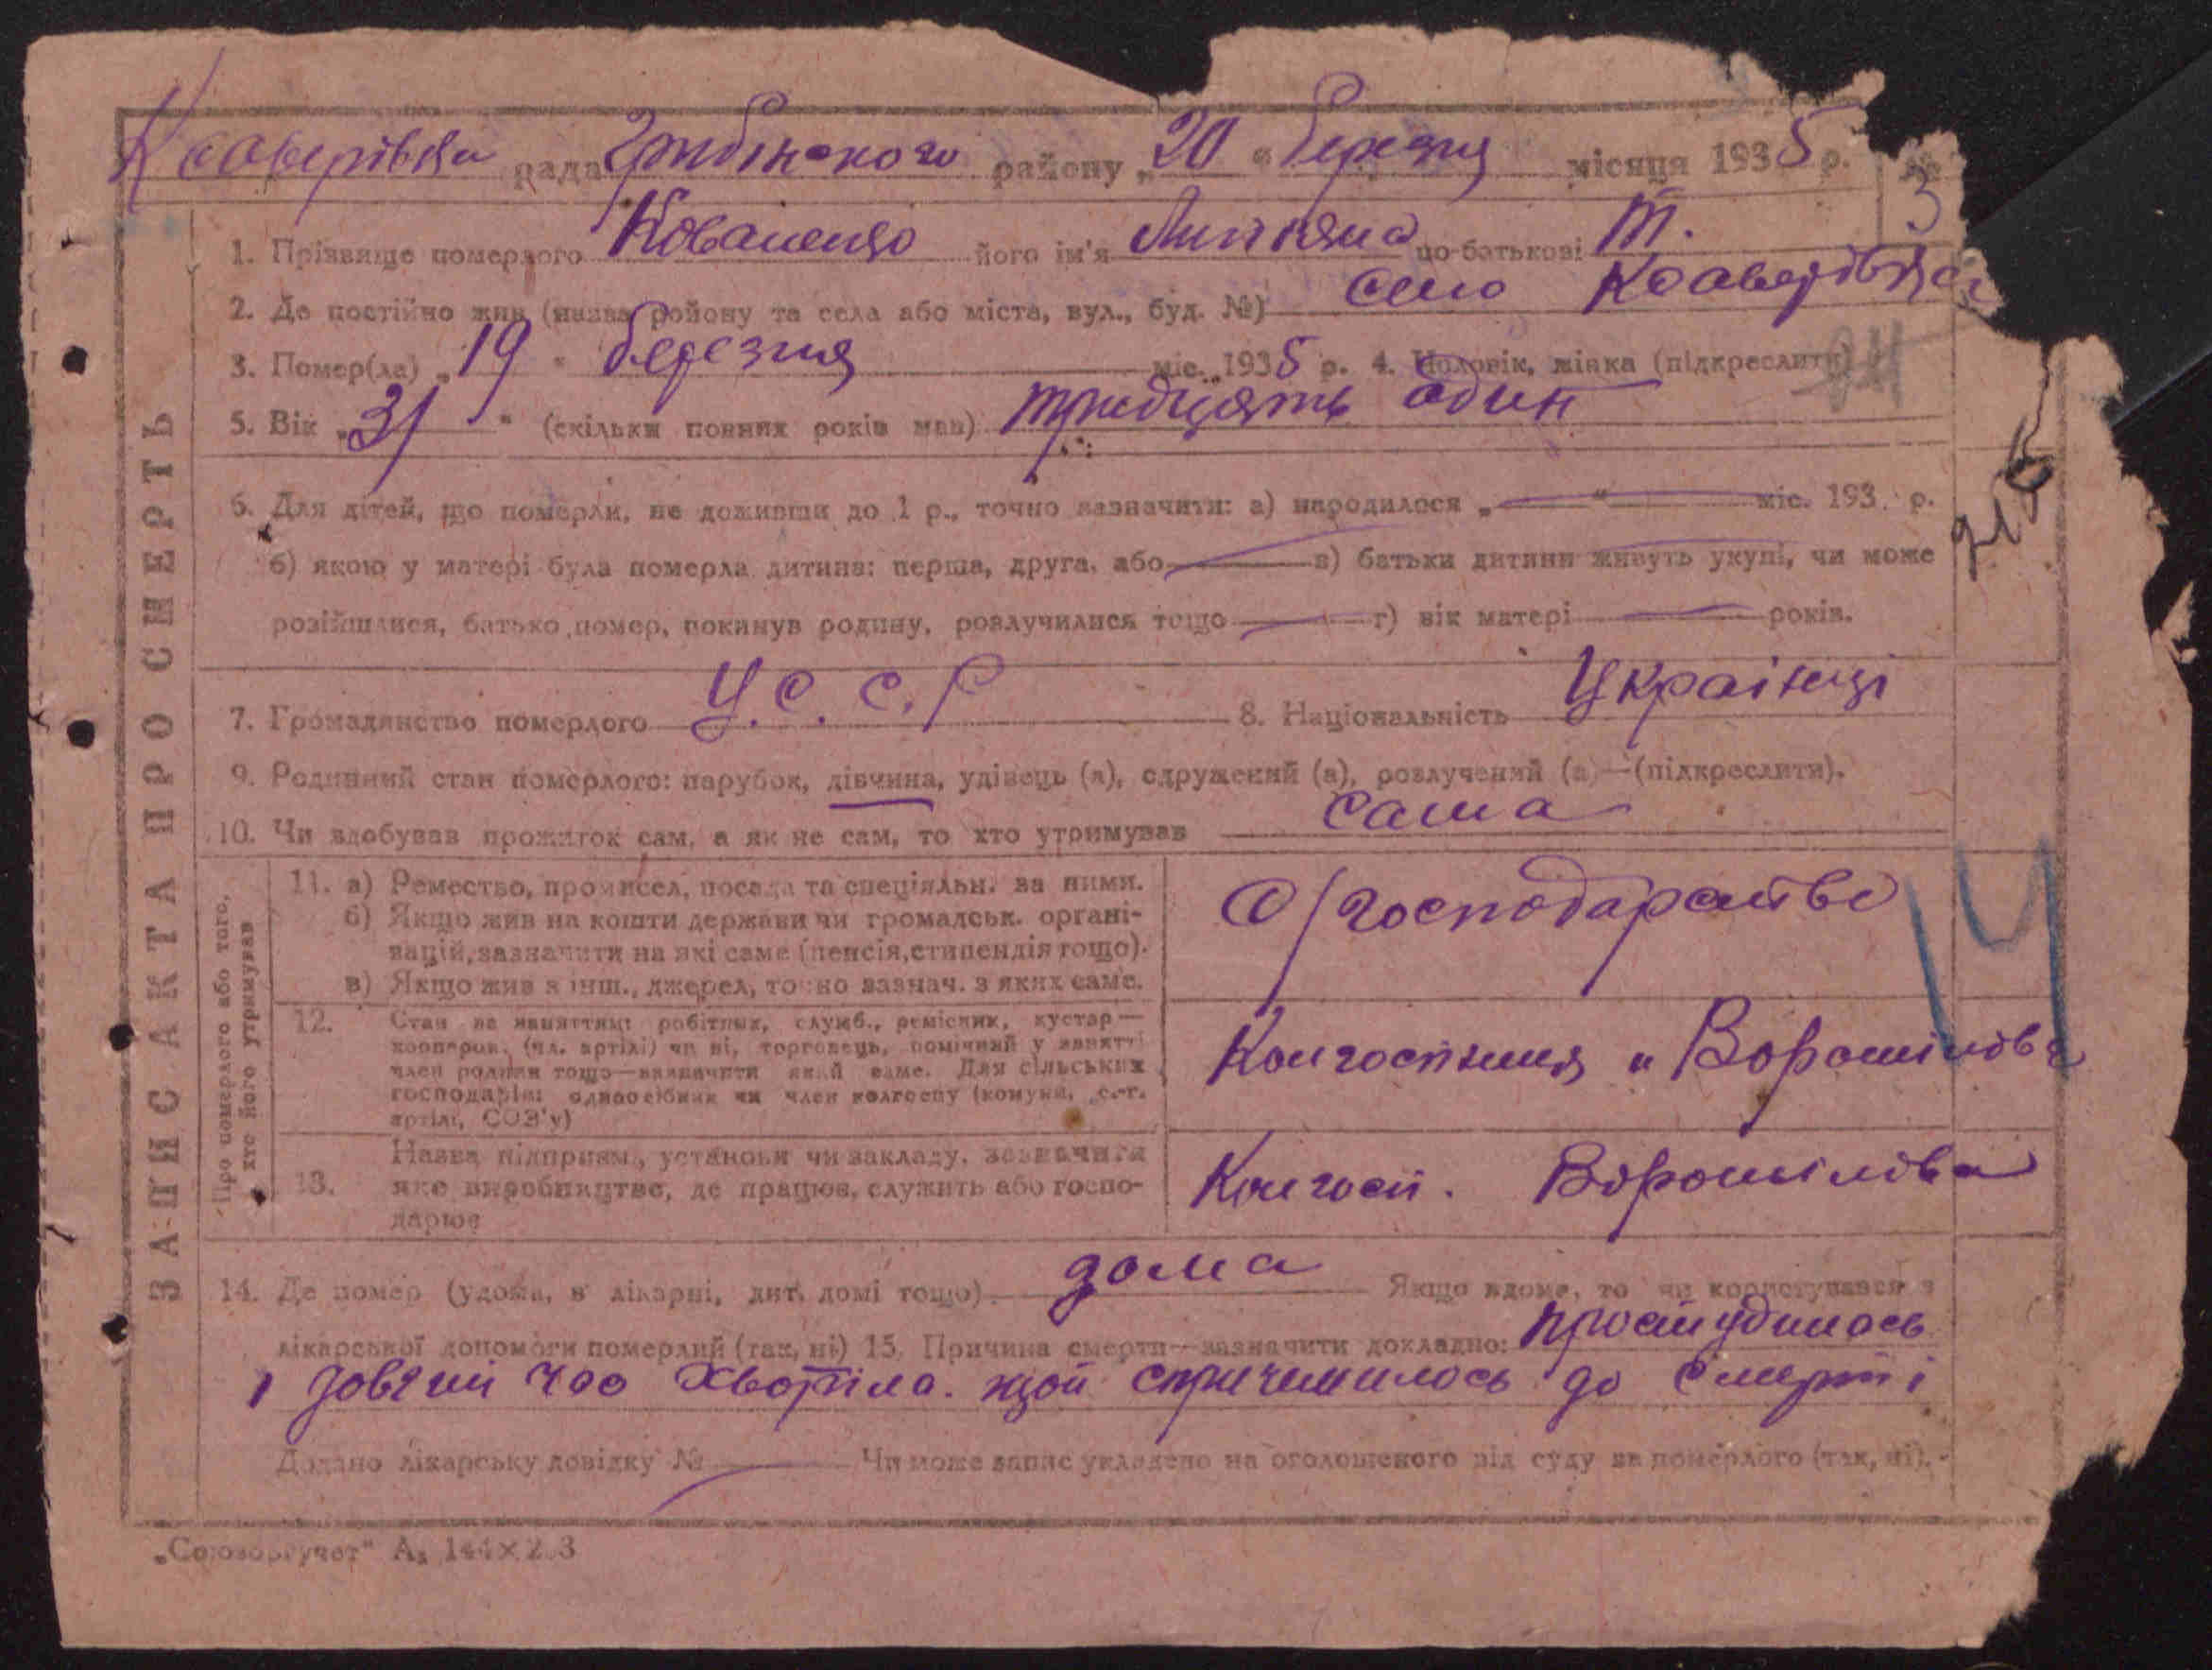 Ксаверівка рада Гребінського району „20" березня місяця 1935 р. № 3
1. Прізвище померлого Коваленко його ім'я по-батькові Т.
2. Де постійно жив (назва району та села або міста, вул., буд. №) село Ксаверівка
3. Помер(ла) „19" березня міс. 1935 р. 4. Чоловік, жінка (підкреслити)
5. Вік „31" (скільки повних років мав) тридцять один
6. Для дітей, що померли, не доживши до 1 р., точно зазначити: а) народилося „ " міс. 193 р.
б) якою у матері була померла дитина: перша, друга, або в) батьки дитини живуть укупі, чи може
розійшлися, батько помер, покинув родину, розлучилися тощо г) вік матері років.
7. Громадянство померлого У.С.С.Р 8. Національність Українці
9. Родинний стан померлого: парубок, дівчина, удівець (а), одружений (а), розлучений (а)—(підкреслити).
10. Чи здобував прожиток сам, а як не сам, то хто утримував сама
ЗАПИС АКТА ПРО СМЕРТЬ
Про померлого або того,
хто його утримував
11. а) Ремество, промисел, посада та спеціяльн. за ними.
б) Якщо жив на кошти держави чи громадськ. органі-
зацій, зазначити на які саме (пенсія, стипендія тощо).
в) Якщо жив з інш., джерел, точно зазнач. з яких саме.
С/господарстве
12. Стан за заняттям: робітник, служб., ремісник, кустар—
кооперов. (чл. артілі) чи ні, торговець, помічний у занятті
член родини тощо—зазначити який саме. Для сільських
господарів: одноосібник чи член колгоспу (комуни, с.-г.
артілі, СОЗ'у)
Колгоспниця „Ворошилова
13. Назва підприєм., установи чи закладу, зазначити
яке виробництво, де працює, служить або госпо-
дарює
Колгосп. Ворошилова
14. Де помер (удома, в лікарні, дит. домі тощо) дома Якщо вдома, то чи користувався з
лікарської допомоги померлий (так, ні) 15. Причина смерти—зазначити докладно: простудилась
і довгий час хворіла. щой спричинилось до смерті
Додано лікарську довідку № Чи може запис укладено на оголошеного від суду за померлого (так, ні).
„Союзоргучет" А₅ 144×2.3